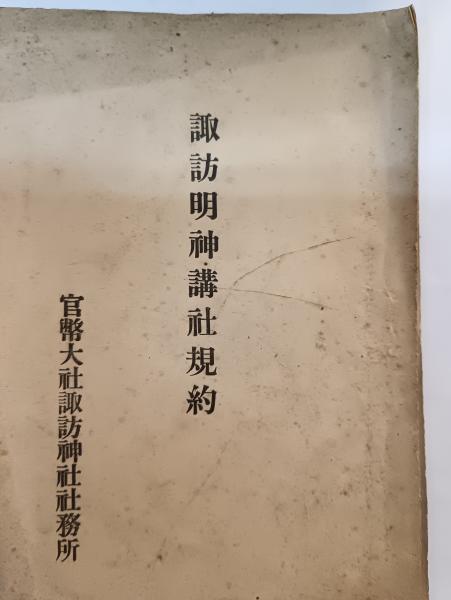 諏訪明神講社規約
官幣大社諏訪神社社務所